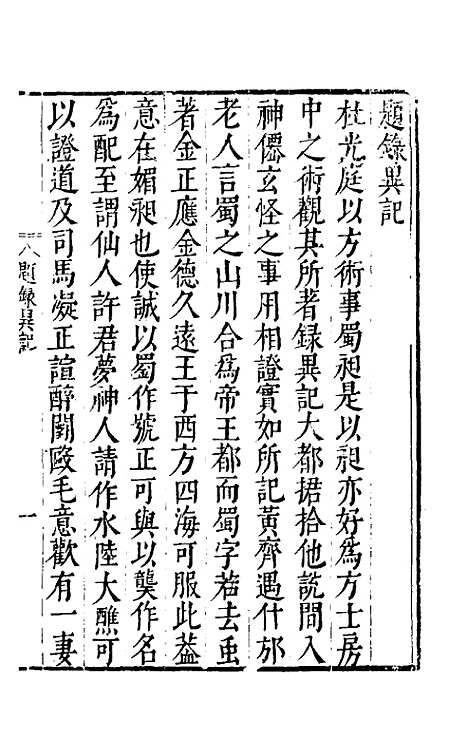 題錄異記
杜光庭以方術事蜀昶是以昶亦好爲方士房
中之術觀其所著録異記大都捃拾他說間入
神僊玄怪之事用相證實如所記黃齊遇什邡
老人言蜀之山川合爲帝王都而蜀字若去虫
著金正應金德久遠王于西方四海可服此葢
意在媚昶也使誠以蜀作號正可與以龑作名
爲配至謂仙人許君夢神人請作水陸大醮可
以證道及司馬凝正諠醉鬭毆毛意歡有一妻
題録異記
一